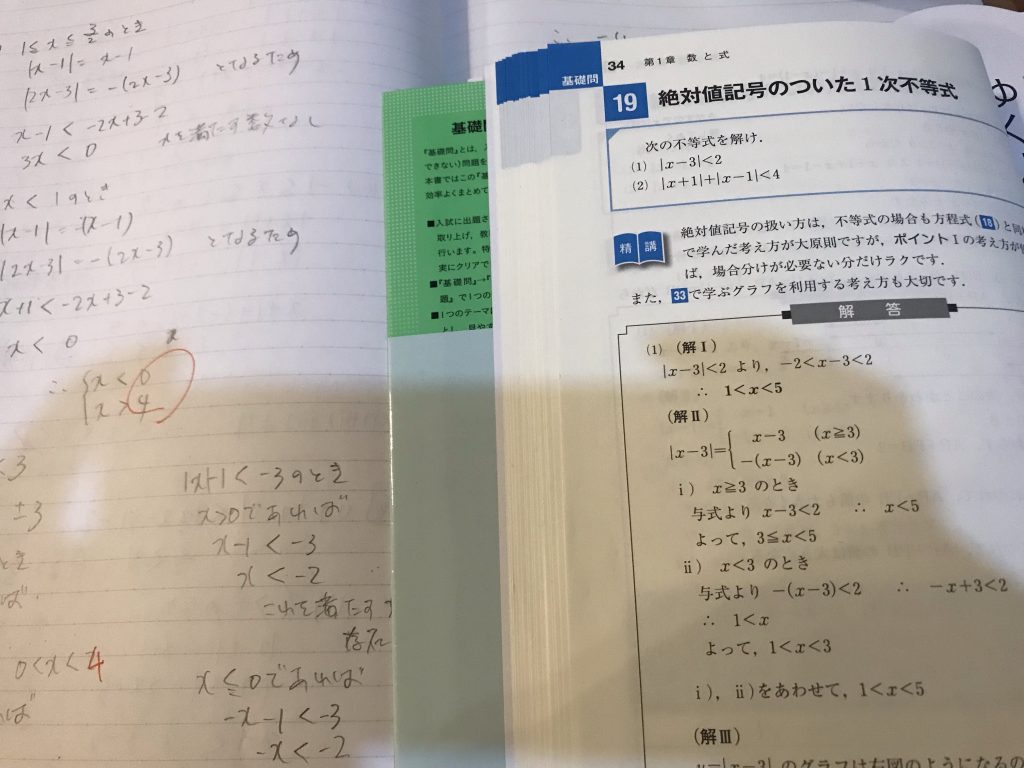 1≦x≦3/2のとき
|x-1|= x-1
|2x-3|= -(2x-3) となるため
x-1 < -2x+3-2
3x < 0
x < 1のとき
|2x-3|= -(2x-3) となるため
x+1 < -2x+3-2
x < 0
∴ {x < 0
x > 4
< 3
±3
とき
0<x<4
|x+1 < -3のとき
x>0であれば
x-1 < -3
x < -2
これを満たす
x≦0であれば
-x-1 < -3
-x < -2
基礎
『基礎問』とは，
できない)問題を
本書ではこの『基
効率よくまとめて
■入試に出題さ
取り上げ，教
行います。特
実にクリアで
■『基礎問』→『
題』で1つの
■1つのテーマに
基礎問
34 第1章 数と式
19 絶対値記号のついた1次不等式
次の不等式を解け．
(1) |x-3|<2
(2) |x+1|+|x-1|<4
精講
絶対値記号の扱い方は，不等式の場合も方程式(18)と同
で学んだ考え方が大原則ですが，ポイントIの考え方が
ば，場合分けが必要ない分だけラクです．
また，33で学ぶグラフを利用する考え方も大切です．
解答
(1) (解I)
|x-3|<2 より，-2<x-3<2
∴ 1<x<5
(解II)
|x-3|={ x-3 (x≧3)
-(x-3) (x<3)
i) x≧3 のとき
与式より x-3<2 ∴ x<5
よって，3≦x<5
ii) x<3 のとき
与式より -(x-3)<2 ∴ -x+3<2
∴ 1<x
よって，1<x<3
i)，ii)をあわせて，1<x<5
(解III)
y=|x-3| のグラフは右図のようになるの